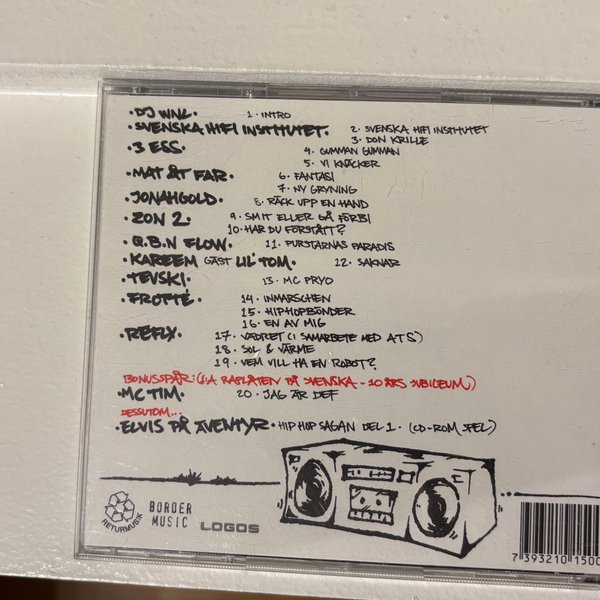 ·DJ WNL· 1· INTRO
·SVENSKA HIFI INSTITUTET· 2· SVENSKA HIFI INSTITUTET
3· DON KRILLE
·3 ESS· 4· GUMMAN GUMMAN
5· VI KNÄCKER
·MAT ÅT FAR· 6· FANTASI
7· NY GRYNING
·JONAHGOLD· 8· RÄCK UPP EN HAND
·ZON 2· 9· SMIT ELLER GÅ FÖRBI
10· HAR DU FÖRSTÅTT?
·Q.B.N FLOW· 11· PURSTARNAS PARADIS
·KAREEM GÄST LIL'TOM· 12· SAKNAR
·TEVSKI· 13· MC PRYO
·FROTTÉ· 14· INMARSCHEN
15· HIPHOPBÖNDER
16· EN AV MIG
·REFLX· 17· VÄDRET (I SAMARBETE MED ATS)
18· SOL & VÄRME
19· VEM VILL HA EN ROBOT?
BONUSSPÅR: (1:A RAPLÅTEN PÅ SVENSKA - 10 ÅRS JUBILEUM)
·MC TIM· 20· JAG ÄR DEF
DESSUTOM...
·ELVIS PÅ ÄVENTYR· HIP HOP SAGAN DEL 1· (CD-ROM SPEL)
RETURMUSIK
BORDER MUSIC
LOGOS
7 393210 1500